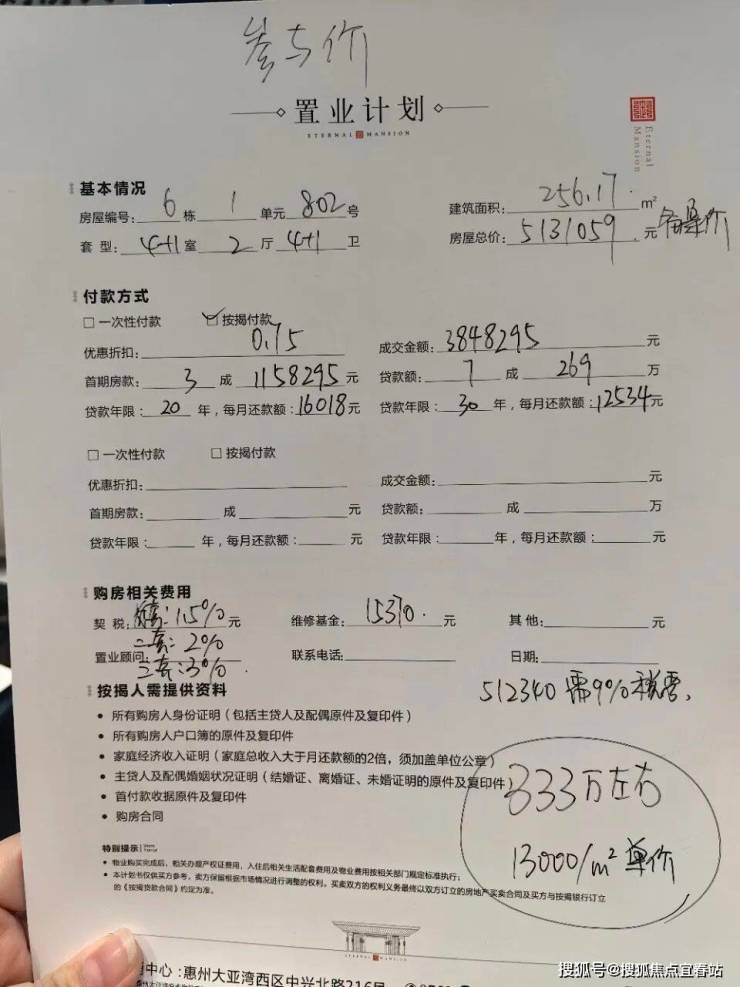 参与价
置业计划
ETERNAL MANSION
Eternal Mansion
基本情况
房屋编号: 6 栋 1 单元 802 号
建筑面积: 256.17 m²
套 型: 4+1 室 2 厅 4+1 卫
房屋总价: 5131059 元 备案价
付款方式
□ 一次性付款 ☑ 按揭付款
优惠折扣: 0.75
成交金额: 3848295 元
首期房款: 3 成 1158295 元
贷款额: 7 成 269 万
贷款年限: 20 年，每月还款额: 16018 元
贷款年限: 30 年，每月还款额: 12534 元
□ 一次性付款 □ 按揭付款
优惠折扣:
成交金额: 元
首期房款: 成 元
贷款额: 成 万
贷款年限: 年，每月还款额: 元
贷款年限: 年，每月还款额: 元
购房相关费用
契 税: 首套: 1.5% 元
维修基金: 15370. 元
其 他: 元
二套: 2%
置业顾问: 三套: 3%.
联系电话:
日期:
512340 需9%税费.
按揭人需提供资料
• 所有购房人身份证明（包括主贷人及配偶原件及复印件）
• 所有购房人户口簿的原件及复印件
• 家庭经济收入证明（家庭总收入大于月还款额的2倍，须加盖单位公章）
• 主贷人及配偶婚姻状况证明（结婚证、离婚证、未婚证明的原件及复印件
• 首付款收据原件及复印件
• 购房合同
333万左右
13000/m² 单价
特别提示
• 物业购买完成后，相关办理产权证费用，入住后相关生活配套费用及物业费用按相关部门规定标准执行;
• 本计划书仅供买方参考，卖方保留根据市场情况进行调整的权利。买卖双方的权利义务最终以双方订立的房地产买卖合同及买方与按揭银行订立
的《按揭贷款合同》约定为准。
中心:惠州大亚湾西区中兴北路216号
搜狐号@搜狐焦点宜春站